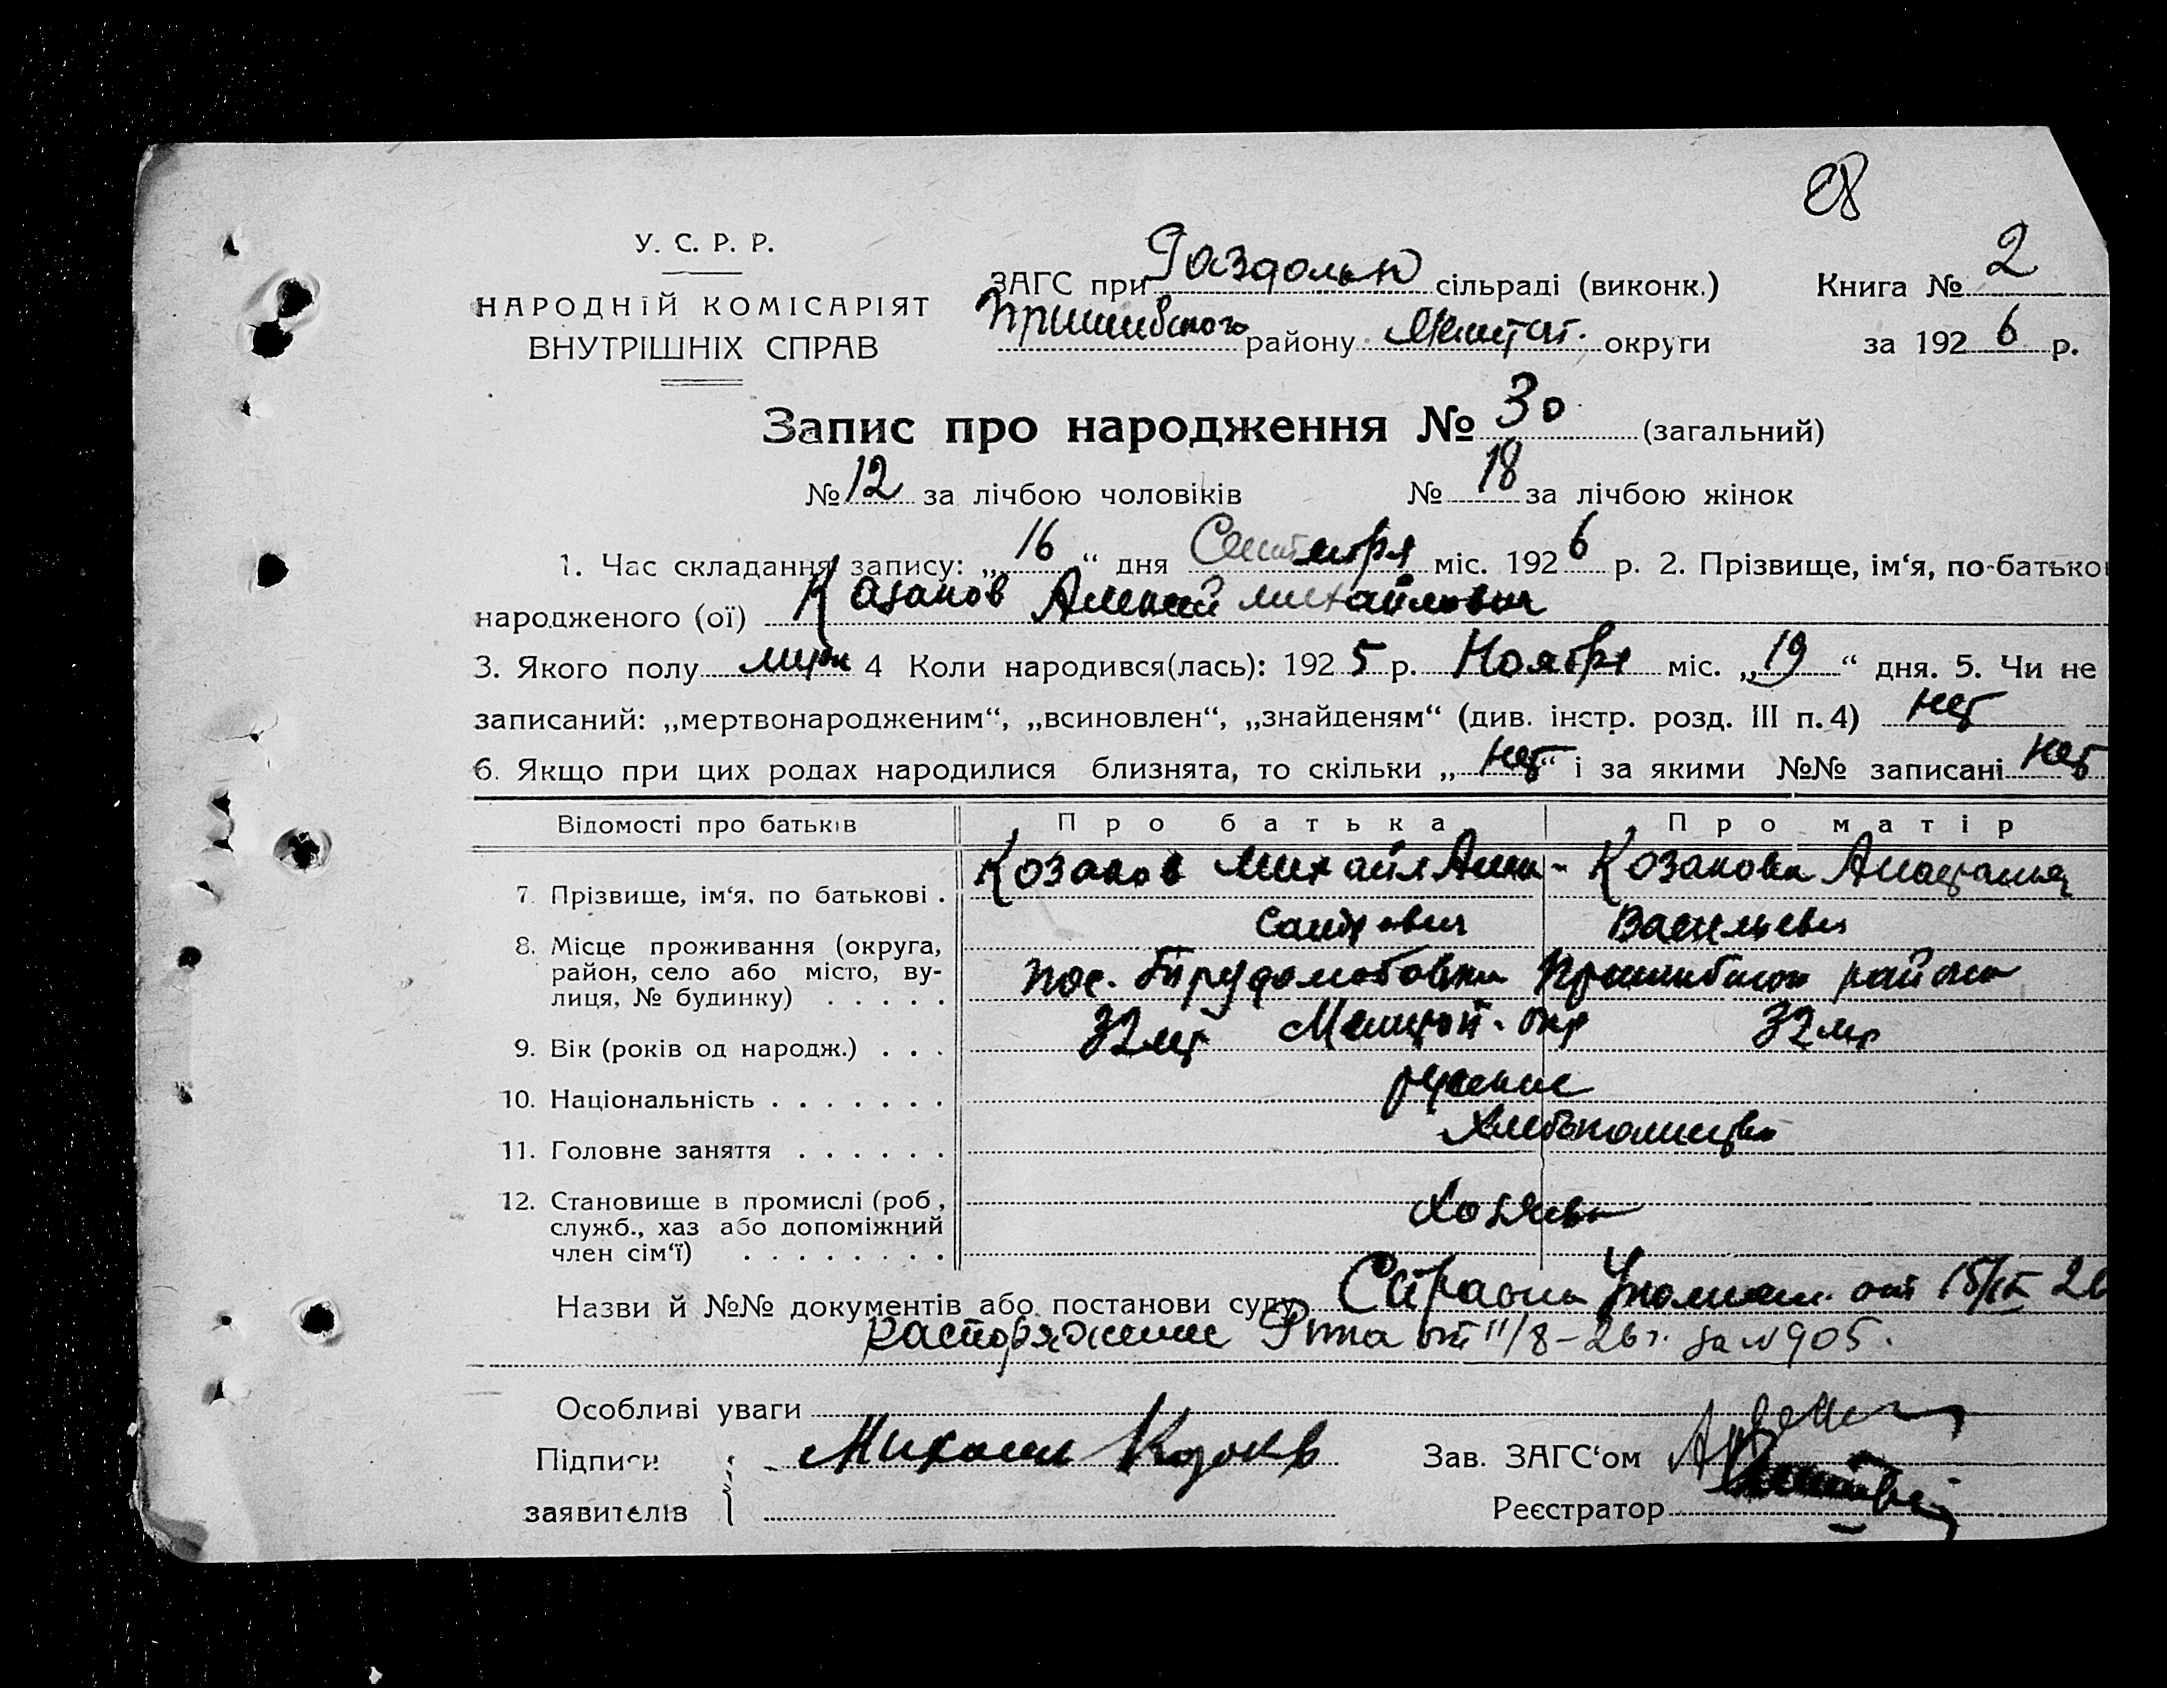 28
У. С. Р. Р.
НАРОДНІЙ КОМІСАРІЯТ
ВНУТРІШНІХ СПРАВ
ЗАГС при сільраді (виконк.) Книга № 2
Пришибского району Мелитоп. округи за 1926 р.
Запис про народження № 30 (загальний)
№ 12 за лічбою чоловіків № 18 за лічбою жінок
1. Час складання запису: „ 16 “ дня Сентября міс. 1926 р. 2. Прізвище, ім‘я, по-батько
народженого (ої) Казаков Алексей Михайлович
3. Якого полу 4 Коли народився(лась): 1925 р. Ноября міс. „ 19 “ дня. 5. Чи не
записаний: „мертвонародженим“, „всиновлен“, „знайденям“ (див. інстр. розд. III п. 4) нет
6. Якщо при цих родах народилися близнята, то скільки „ нет “ і за якими №№ записані нет
Відомості про батьків Про батька Про матір
7. Прізвище, ім‘я, по батькові . Козаков Михаил Алек- Козакова
сандрович Васильевн
8. Місце проживання (округа, район, село або місто, ву-
лиця, № будинку) . . . . . пос. Трудолюбовка Пришибског района
9. Вік (років од народж.) . . . 32 лет Мелитоп. окр 32 лет
10. Національність . . . . . . . русские
11. Головне заняття . . . . . .
12. Становище в промислі (роб., служб., хаз або допоміжний
член сім‘ї) . . . . . . . . Хозяева
Назви й №№ документів або постанови суду Справка от 15/IX 26
распоряжение от 11/8-26 г. за №905.
Особливі уваги
Підписи Михаил Зав. ЗАГС‘ом
заявителів Реєстратор